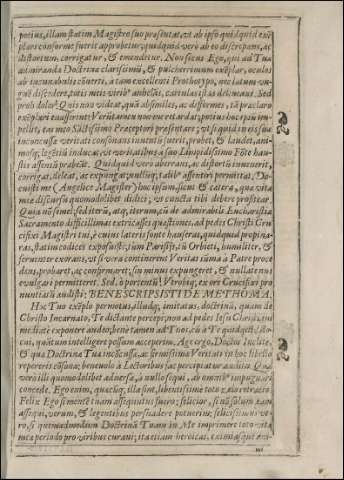 potius, illam statim Magistro suo præsentat, vt ab ipso quidquid exẽ
plari conforme fuerit approbetur, quidquid verò ab eo discrepans, ac
distortum, corrigatur, & emendetur. Non secus Ego, qui ad Tua
admiranda Doctrina clarissimũ, & pulcherrimum exẽplar, oculos
ab incunabulis conieci, à tam excellenti Prothotypo, nec latum vn-
guẽ discedere, totis meis viribꝰ ambiẽs, has lineas delineaui. Sed
proh dolor! Quis non videat, quã absimiles, ac difformes, tã præclaro
exẽplari euaserint? Verũtamen non me retardat, potius hoc ipsũ im-
pellit, eas meo Sãctissimo Præceptori præsentare, vt si quid in eis sua
inconcussa veritati consonans inuentũ fuerit, probet, & laudet, ani-
mosq; legẽtiũ inducat, vt veritatibus à suo Limpidissimo Fõte hau-
stis assensũ præbeãt. Quidquid verò aberrans, ac distortũ inuenerit,
corrigat, deleat, ac expũgat; nullũq; talibꝰ assentiri permittat. Do-
cuisti me (Angelice Magister) hoc ipsum, sicut & cætera, quæ vitæ
meæ discursu quomodolibet didici; vt cuncta tibi debere profitear.
Quia nõ semel, sed iterũ, atq; iterum, cũ de admirabilis Eucharistia
Sacramento difficillimas extricasses quæstiones, ad pedes Christi Cru-
cifixi Magistri tui, è cuius lateris fonte hauseras, quidquid propina-
ras, statim codices exposuisti; sum Parisijs, tũ Orbieti, humiliter, &
feruenter exorans, vt si vera continerent Veritas summa à Patre proce-
dens, probaret, ac confirmaret; sin minus expungeret, & nullatenus
euulgari permitteret. Sed, ò portentũ! Vtrobiq; ex ore Crucifixi pro
nuntiatũ audisti; BENE SCRIPSISTI DE ME THOMA.
Hoc Tuo exẽplo permotus, illudq; imitatus, doctrinã, quam de
Christo Incarnato, Te dictante percepi; non ad pedes Iesu Christi, qui
me diatè exponere audeo; benè tamen ad Tuos, cũ à Te quidquid docui,
quantum intelligere possum acceperim. Age ergo, Doctor Inclite,
& qua Doctrina Tua incõcussa, ac firmissima Veritati in hoc libello
repereris cõsona; beneuolo à Lectoribus fac percipiatur auditu. Quæ
verò illi quomodolibet aduersa, à nullo sequi, ab omnibꝰ impugnari
concede. Ego enim, quæcũq; illa sint, libentissimè toto animo retracto.
Felix Ego si mentẽ tuam assequutus fuero; felicior, si nõ solum eam
assequi, verum, & legentibus persuadere potuerim; felicissimũ ve-
rò, si quemadmodum Doctrinã Tuam in Me imprimere toto vitæ
meæ periodo pro viribus curaui; ita etiam heroicas, eximiasque ani-
mi